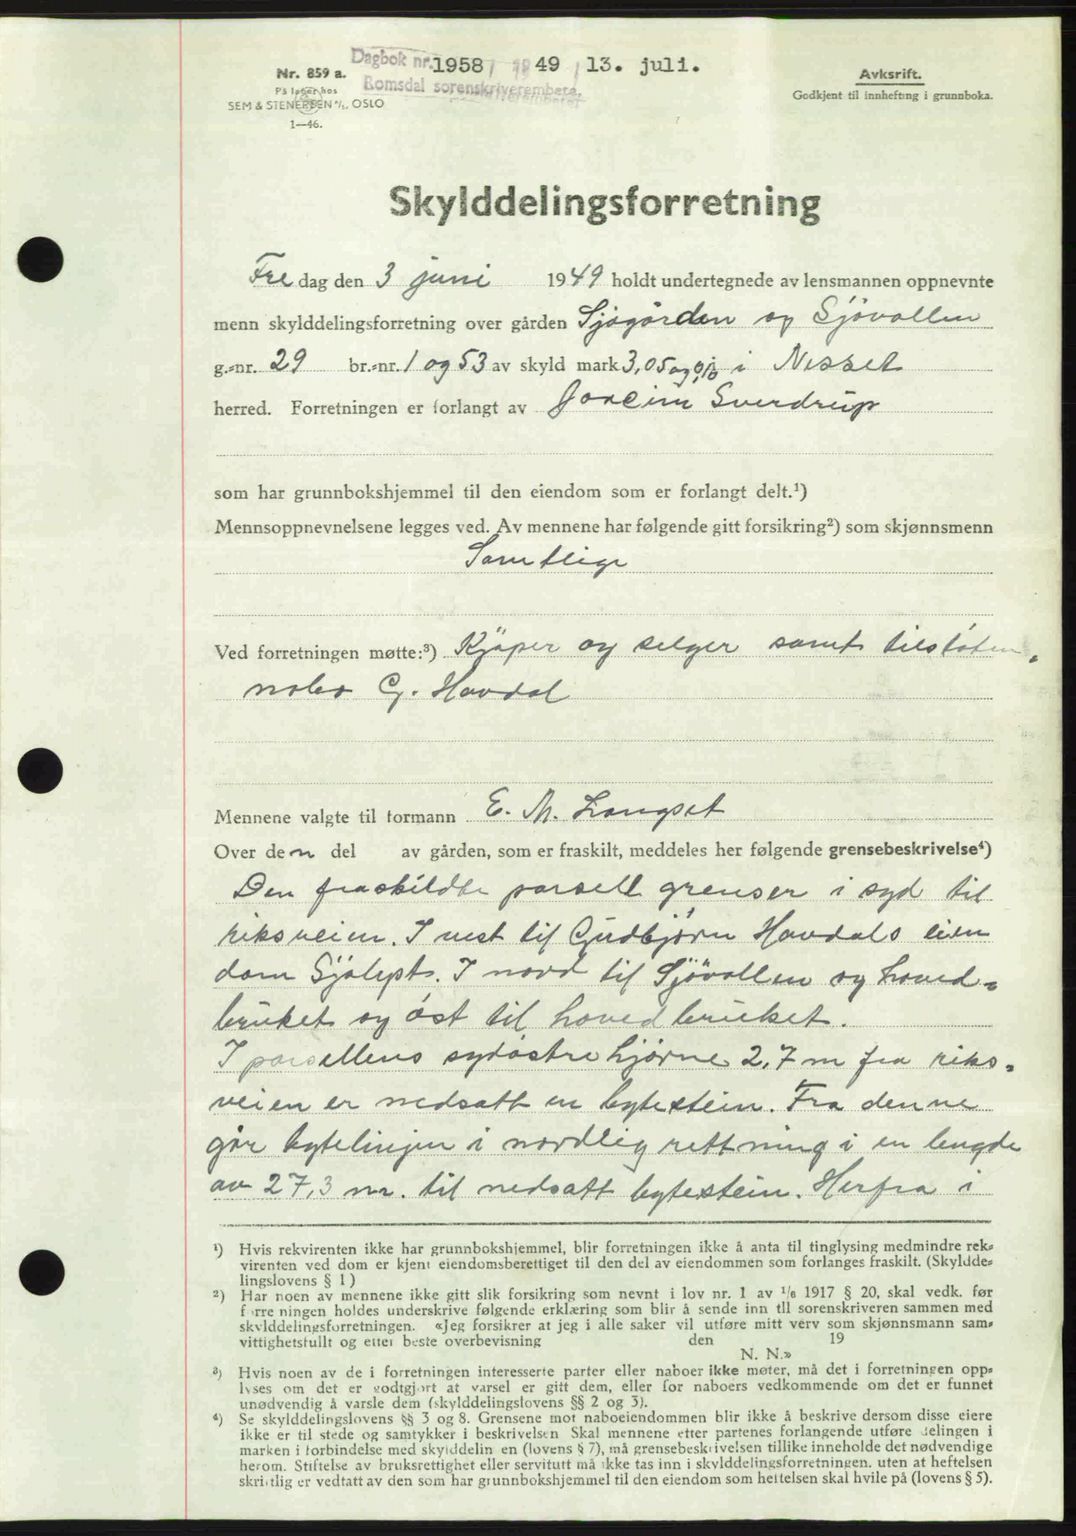 Dagbok nr. 1958 / 1949 / 13. juli.
Romsdal sorenskriverembete.
Nr. 859 a.
På lager hos
SEM & STENERSEN A/S, OSLO
1—46.
Avksrift.
Godkjent til innhefting i grunnboka.
Skylddelingsforretning
Fre dag den 3 juni 1949 holdt undertegnede av lensmannen oppnevnte
menn skylddelingsforretning over gården Sjøgården og Sjøvollen
g.-nr. 29 br.-nr. 1 og 53 av skyld mark 3,05 og 0,10 i Nesset
herred. Forretningen er forlangt av Joacim Sverdrup
som har grunnbokshjemmel til den eiendom som er forlangt delt.¹)
Mennsoppnevnelsene legges ved. Av mennene har følgende gitt forsikring²) som skjønnsmenn
Samtlige
Ved forretningen møtte:³) Kjøper og selger samt tilstøten-
nabo G. Havdal
Mennene valgte til formann E. M. Langset
Over den del av gården, som er fraskilt, meddeles her følgende grensebeskrivelse⁴)
Den fraskildte parsell grenser i syd til
riksveien. I vest til Gudbjørn Havdals eien
dom Sjølyst. I nord til Sjøvollen og hoved-
bruket og øst til hovedbruket.
I parsellens sydøstre hjørne 2,7 m fra riks-
veien er nedsatt en bytestein. Fra denne
går bytelinjen i nordlig rettning i en lengde
av 27,3 m. til nedsatt bytestein. Herfra i
¹) Hvis rekvirenten ikke har grunnbokshjemmel, blir forretningen ikke å anta til tinglysing medmindre rek-
virenten ved dom er kjent eiendomsberettiget til den del av eiendommen som forlanges fraskilt. (Skyldde-
lingslovens § 1)
²) Har noen av mennene ikke gitt slik forsikring som nevnt i lov nr. 1 av 1/6 1917 § 20, skal vedk. før
forretningen holdes underskrive følgende erklæring som blir å sende inn til sorenskriveren sammen med
skylddelingsforretningen. «Jeg forsikrer at jeg i alle saker vil utføre mitt verv som skjønnsmann sam-
vittighetsfullt og etter beste overbevisning den 19
N. N.»
³) Hvis noen av de i forretningen interesserte parter eller naboer ikke møter, må det i forretningen opp-
lyses om det er godtgjort at varsel er gitt dem, eller for naboers vedkommende om det er funnet
unødvendig å varsle dem (skylddelingslovens §§ 2 og 3).
⁴) Se skylddelingslovens §§ 3 og 8. Grensene mot naboeiendommen blir ikke å beskrive dersom disse eiere
ikke er til stede og samtykker i beskrivelsen Skal mennene etter partenes forlangende utføre delingen i
marken i forbindelse med skylddelingen (lovens § 7), må grensebeskrivelsen tillike inneholde det nødvendige
herom. Stiftelse av bruksrettighet eller servitutt må ikke tas inn i skylddelingsforretningen. uten at heftelsen
skriftlig er vedtatt av den som har grunnbokshjemmel til den eiendom som heftelsen skal hvile på (lovens § 5).